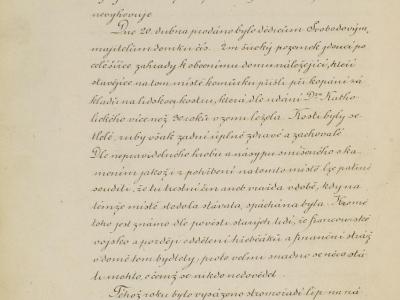 nevyhovuje
Dne 20. dubna prodáno bylo dědicům Svobodovým,
majitelům domku čís. 2m široký pozemek jdoucí po
celé šířce zahrady k obecnímu domu náležející, kteří
stavějíce na tom místě komůrku přišli při kopání zá
kladů na lidskou kostru, která dle udání Dra Katho
lického více než 30 roků v zemi ležela. Kosti byly se
tlelé, zuby však zadní úplně zdravé a zachovalé
Dle nepravidelného hrobu a násypu smíšeného s ka
mením jakož i z potvrzení na tomto místě lze patrně
souditi, že tu trestní čin aneb vražda v době, kdy na
témže místě stodola stávala, spáchána byla. Kromě
toho jest známo dle pověsti starých lidí, že francouzské
vojsko a později oddělení hřebčáků a finanční stráž
v domě tom bydlely, proto velmi snadno se něco stá
ti mohlo, o čemž se nikdo nedověděl.
Téhož roku bylo vysázeno stromořadí lip na ná